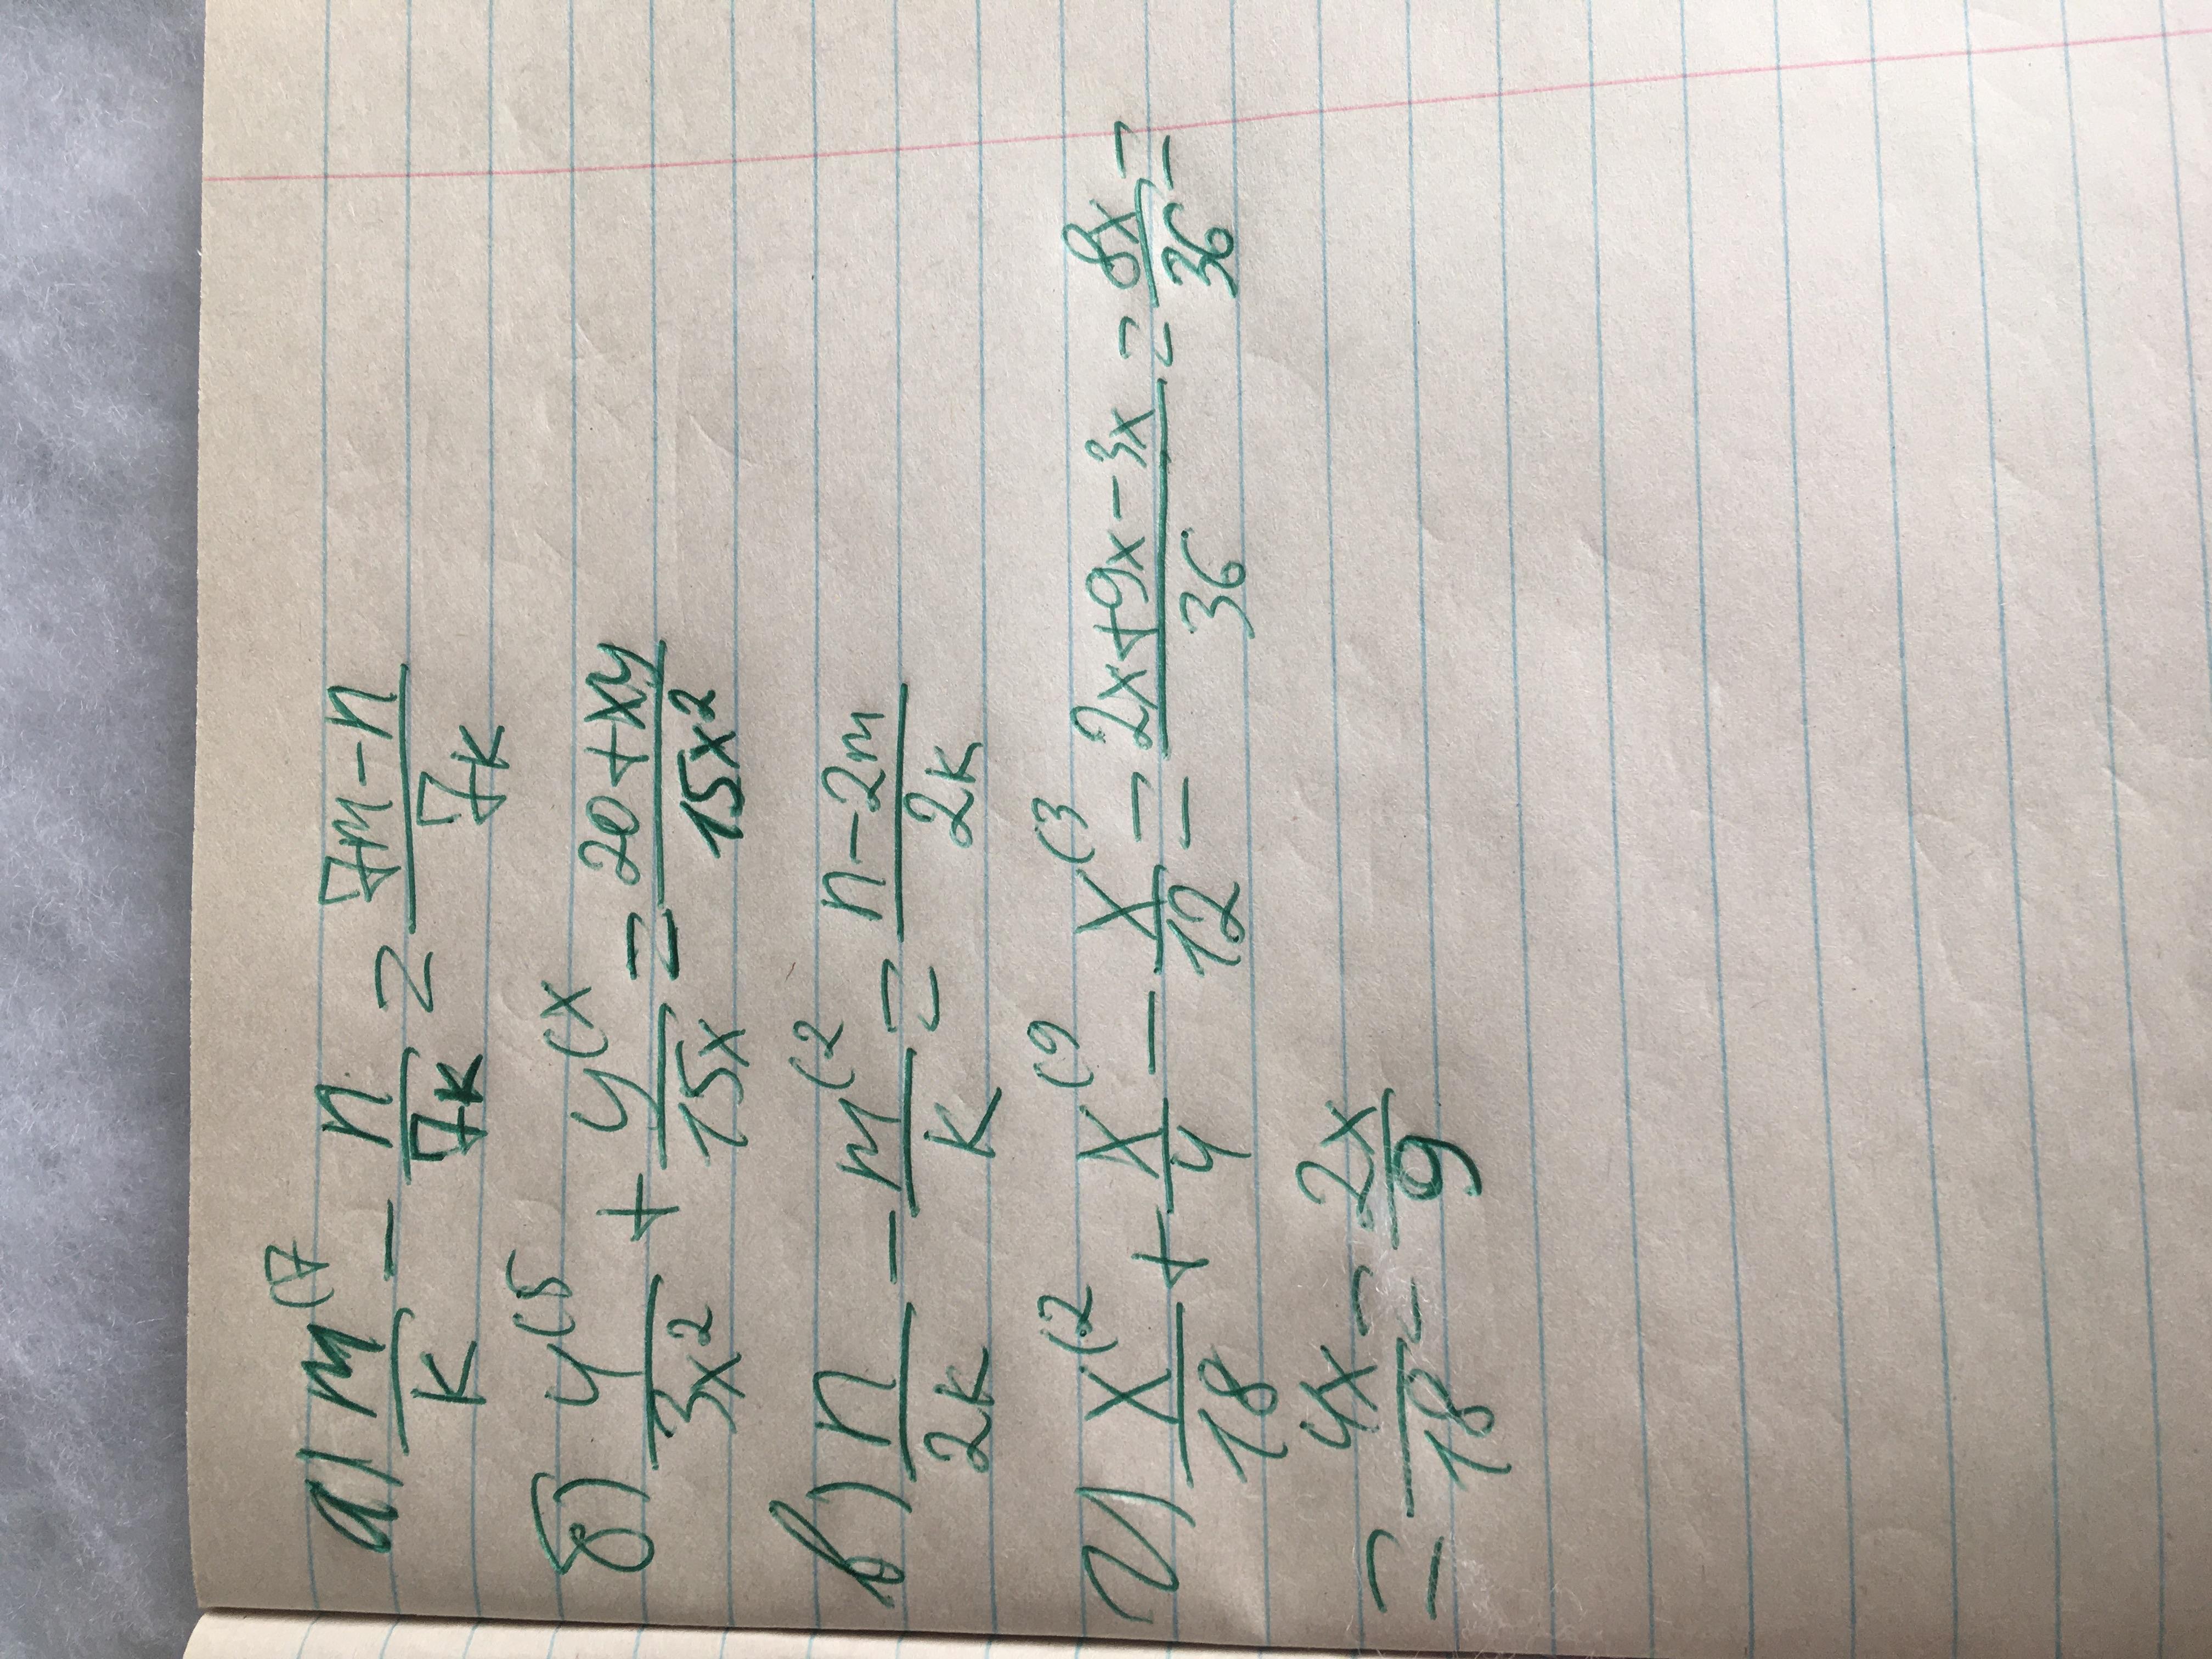 а) m⁽⁷/k − n/7k = 7m−n/7k
б) y⁽⁵/3x² + y⁽ˣ/15x = 20+xy/15x²
в) n/2k − m⁽²/k = n−2m/2k
г) x⁽²/18 + x⁽⁹/4 − x⁽³/12 = 2x+9x−3x/36 = 8x/36 =
= 4x/18 = 2x/9